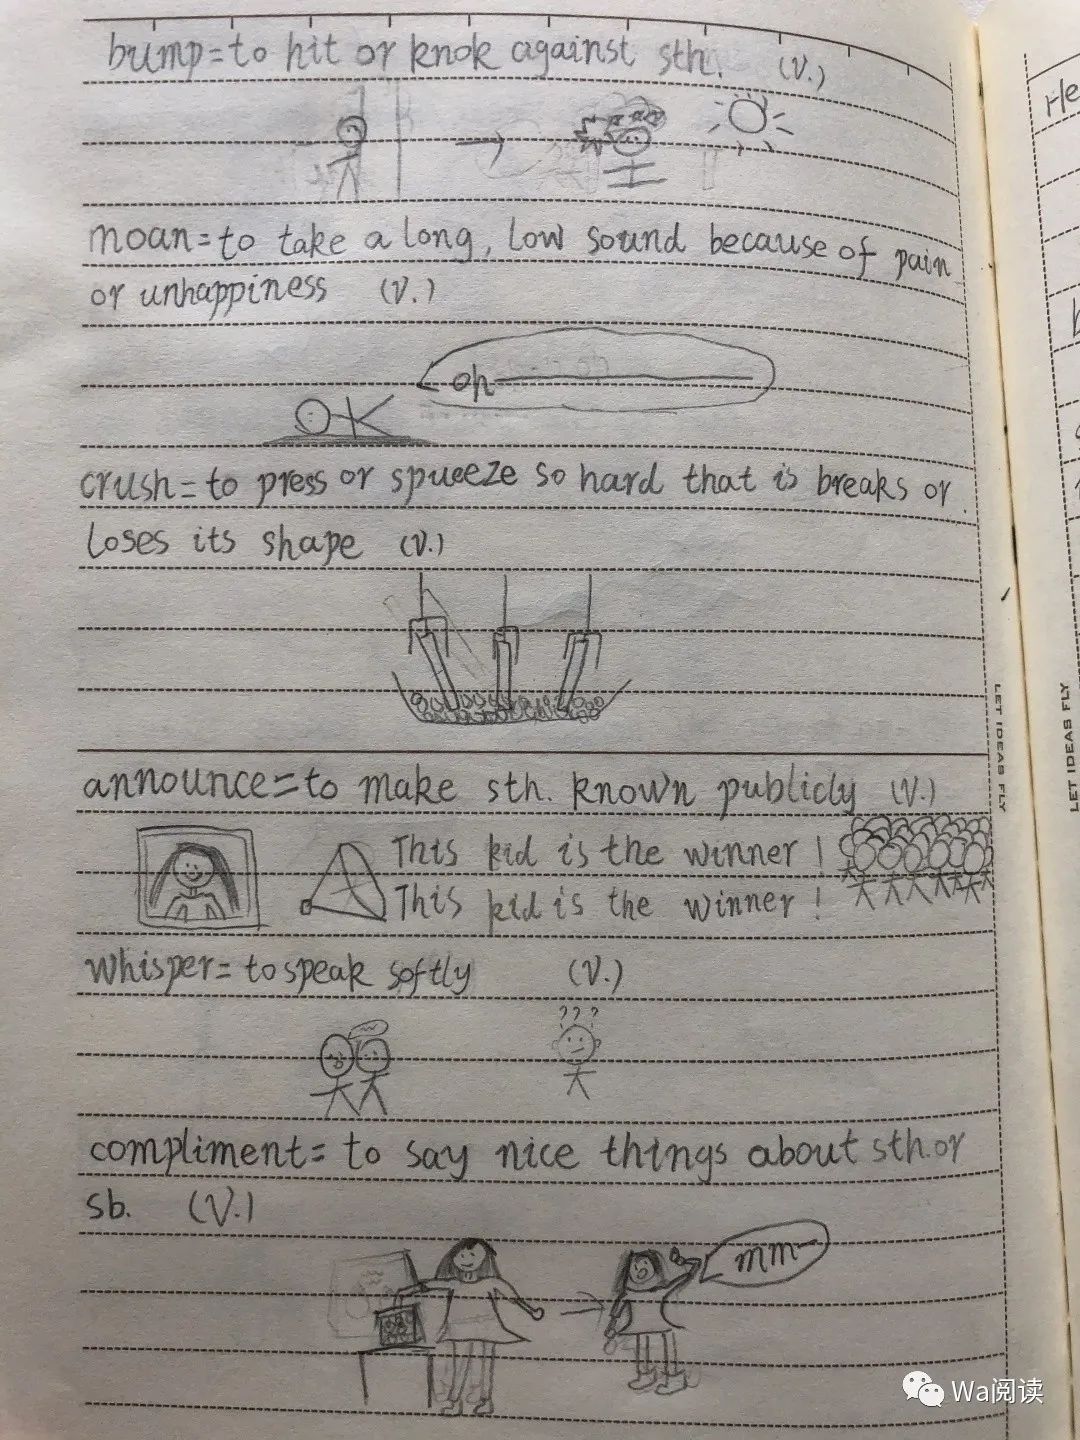 bump=to hit or knok against sth. (V.)
moan=to take a long, low sound because of pain
or unhappiness (V.)
oh
crush=to press or spueeze so hard that is breaks or
loses its shape (V.)
announce=to make sth. known publicly (V.)
This kid is the winner!
This kid is the winner!
whisper=to speak softly (V.)
???
compliment=to say nice things about sth.or
sb. (V.)
mm
LET IDEAS FLY
LET IDEAS FLY
He
Wa阅读